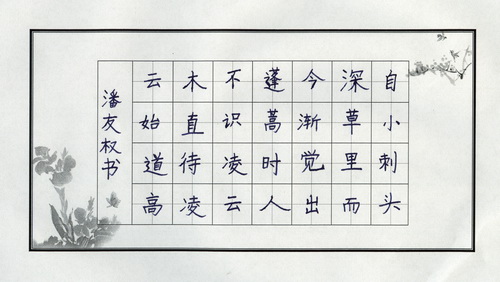 自小刺头
深草里而
今渐觉出
蓬蒿时人
不识凌云
木直待凌
云始道高
潘友权书